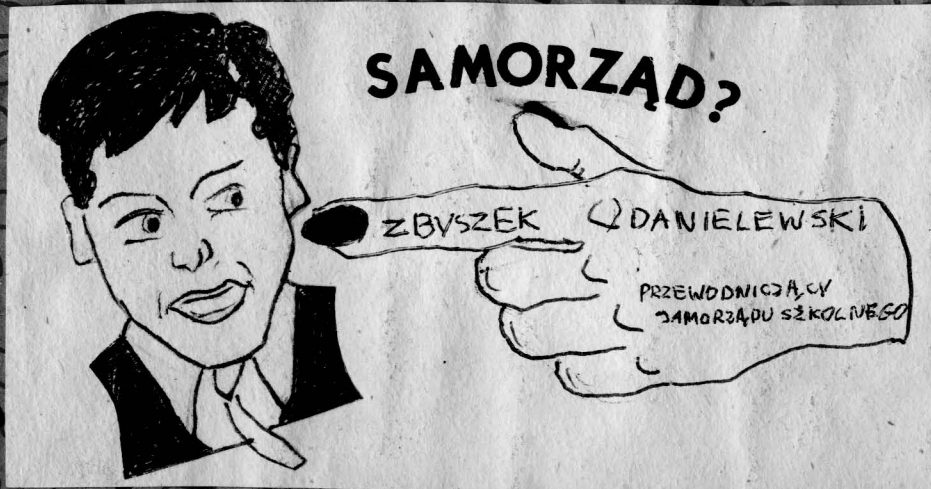 SAMORZĄD?
ZBYSZEK DANIELEWSKI
PRZEWODNICZĄCY
SAMORZĄDU SZKOLNEGO